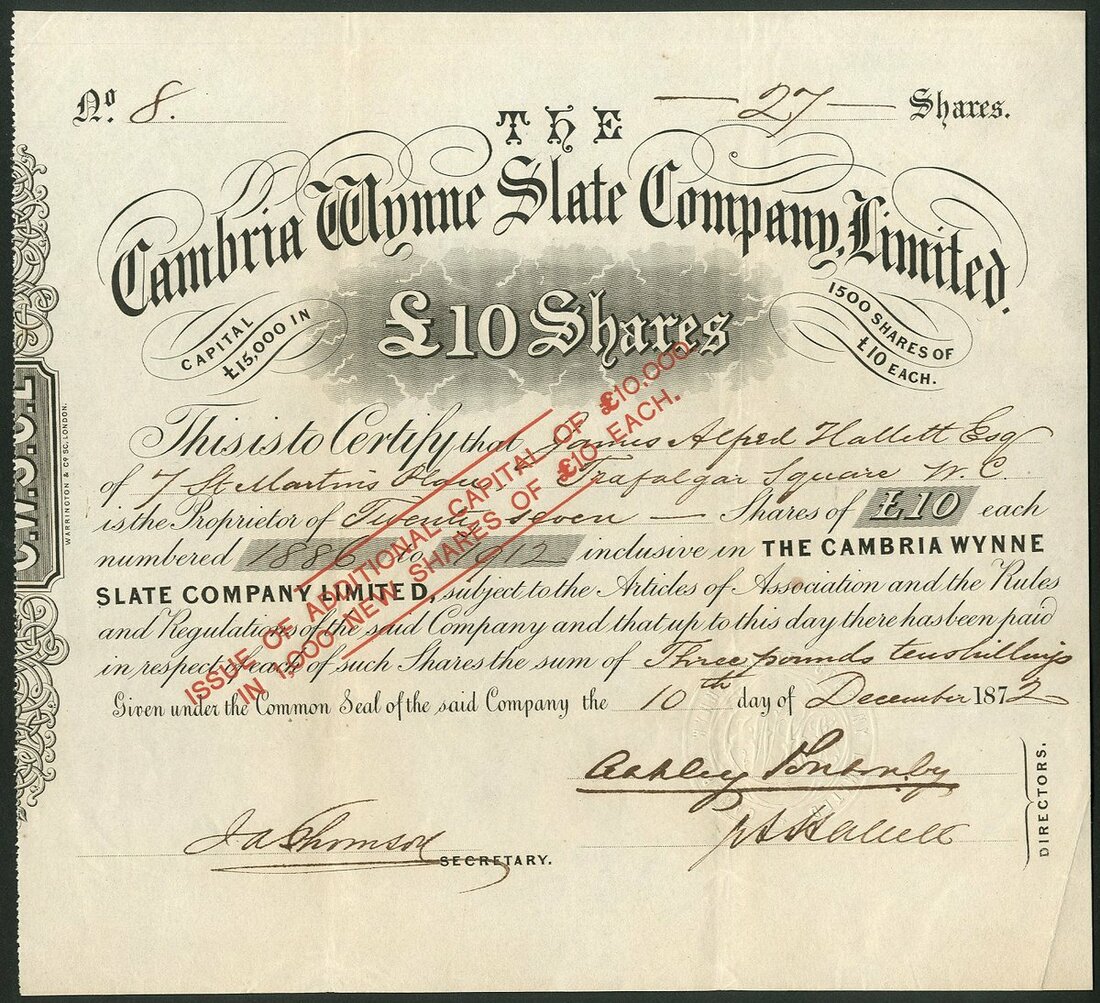 No. 8.
— 27 — Shares.
THE
Cambria Wynne Slate Company, Limited.
CAPITAL
£15,000 IN
£10 Shares
1500 SHARES OF
£10 EACH.
This is to Certify that James Alfred Hallett Esq
of 7 St Martins Place, Trafalgar Square W.C.
is the Proprietor of Twenty seven — Shares of £10 each
numbered 1886 to 1912 inclusive in THE CAMBRIA WYNNE
SLATE COMPANY LIMITED, subject to the Articles of Association and the Rules
and Regulations of the said Company and that up to this day there has been paid
in respect of each of such Shares the sum of Three pounds ten shillings
Given under the Common Seal of the said Company the 10th day of December 1872
ISSUE OF ADDITIONAL CAPITAL OF £10,000
IN 1,000 NEW SHARES OF £10 EACH.
Ashley Ponsonby
J A Hallett
DIRECTORS.
J A Thomson
SECRETARY.
C.W.S.C.L
WARRINGTON & Co. SC. LONDON.